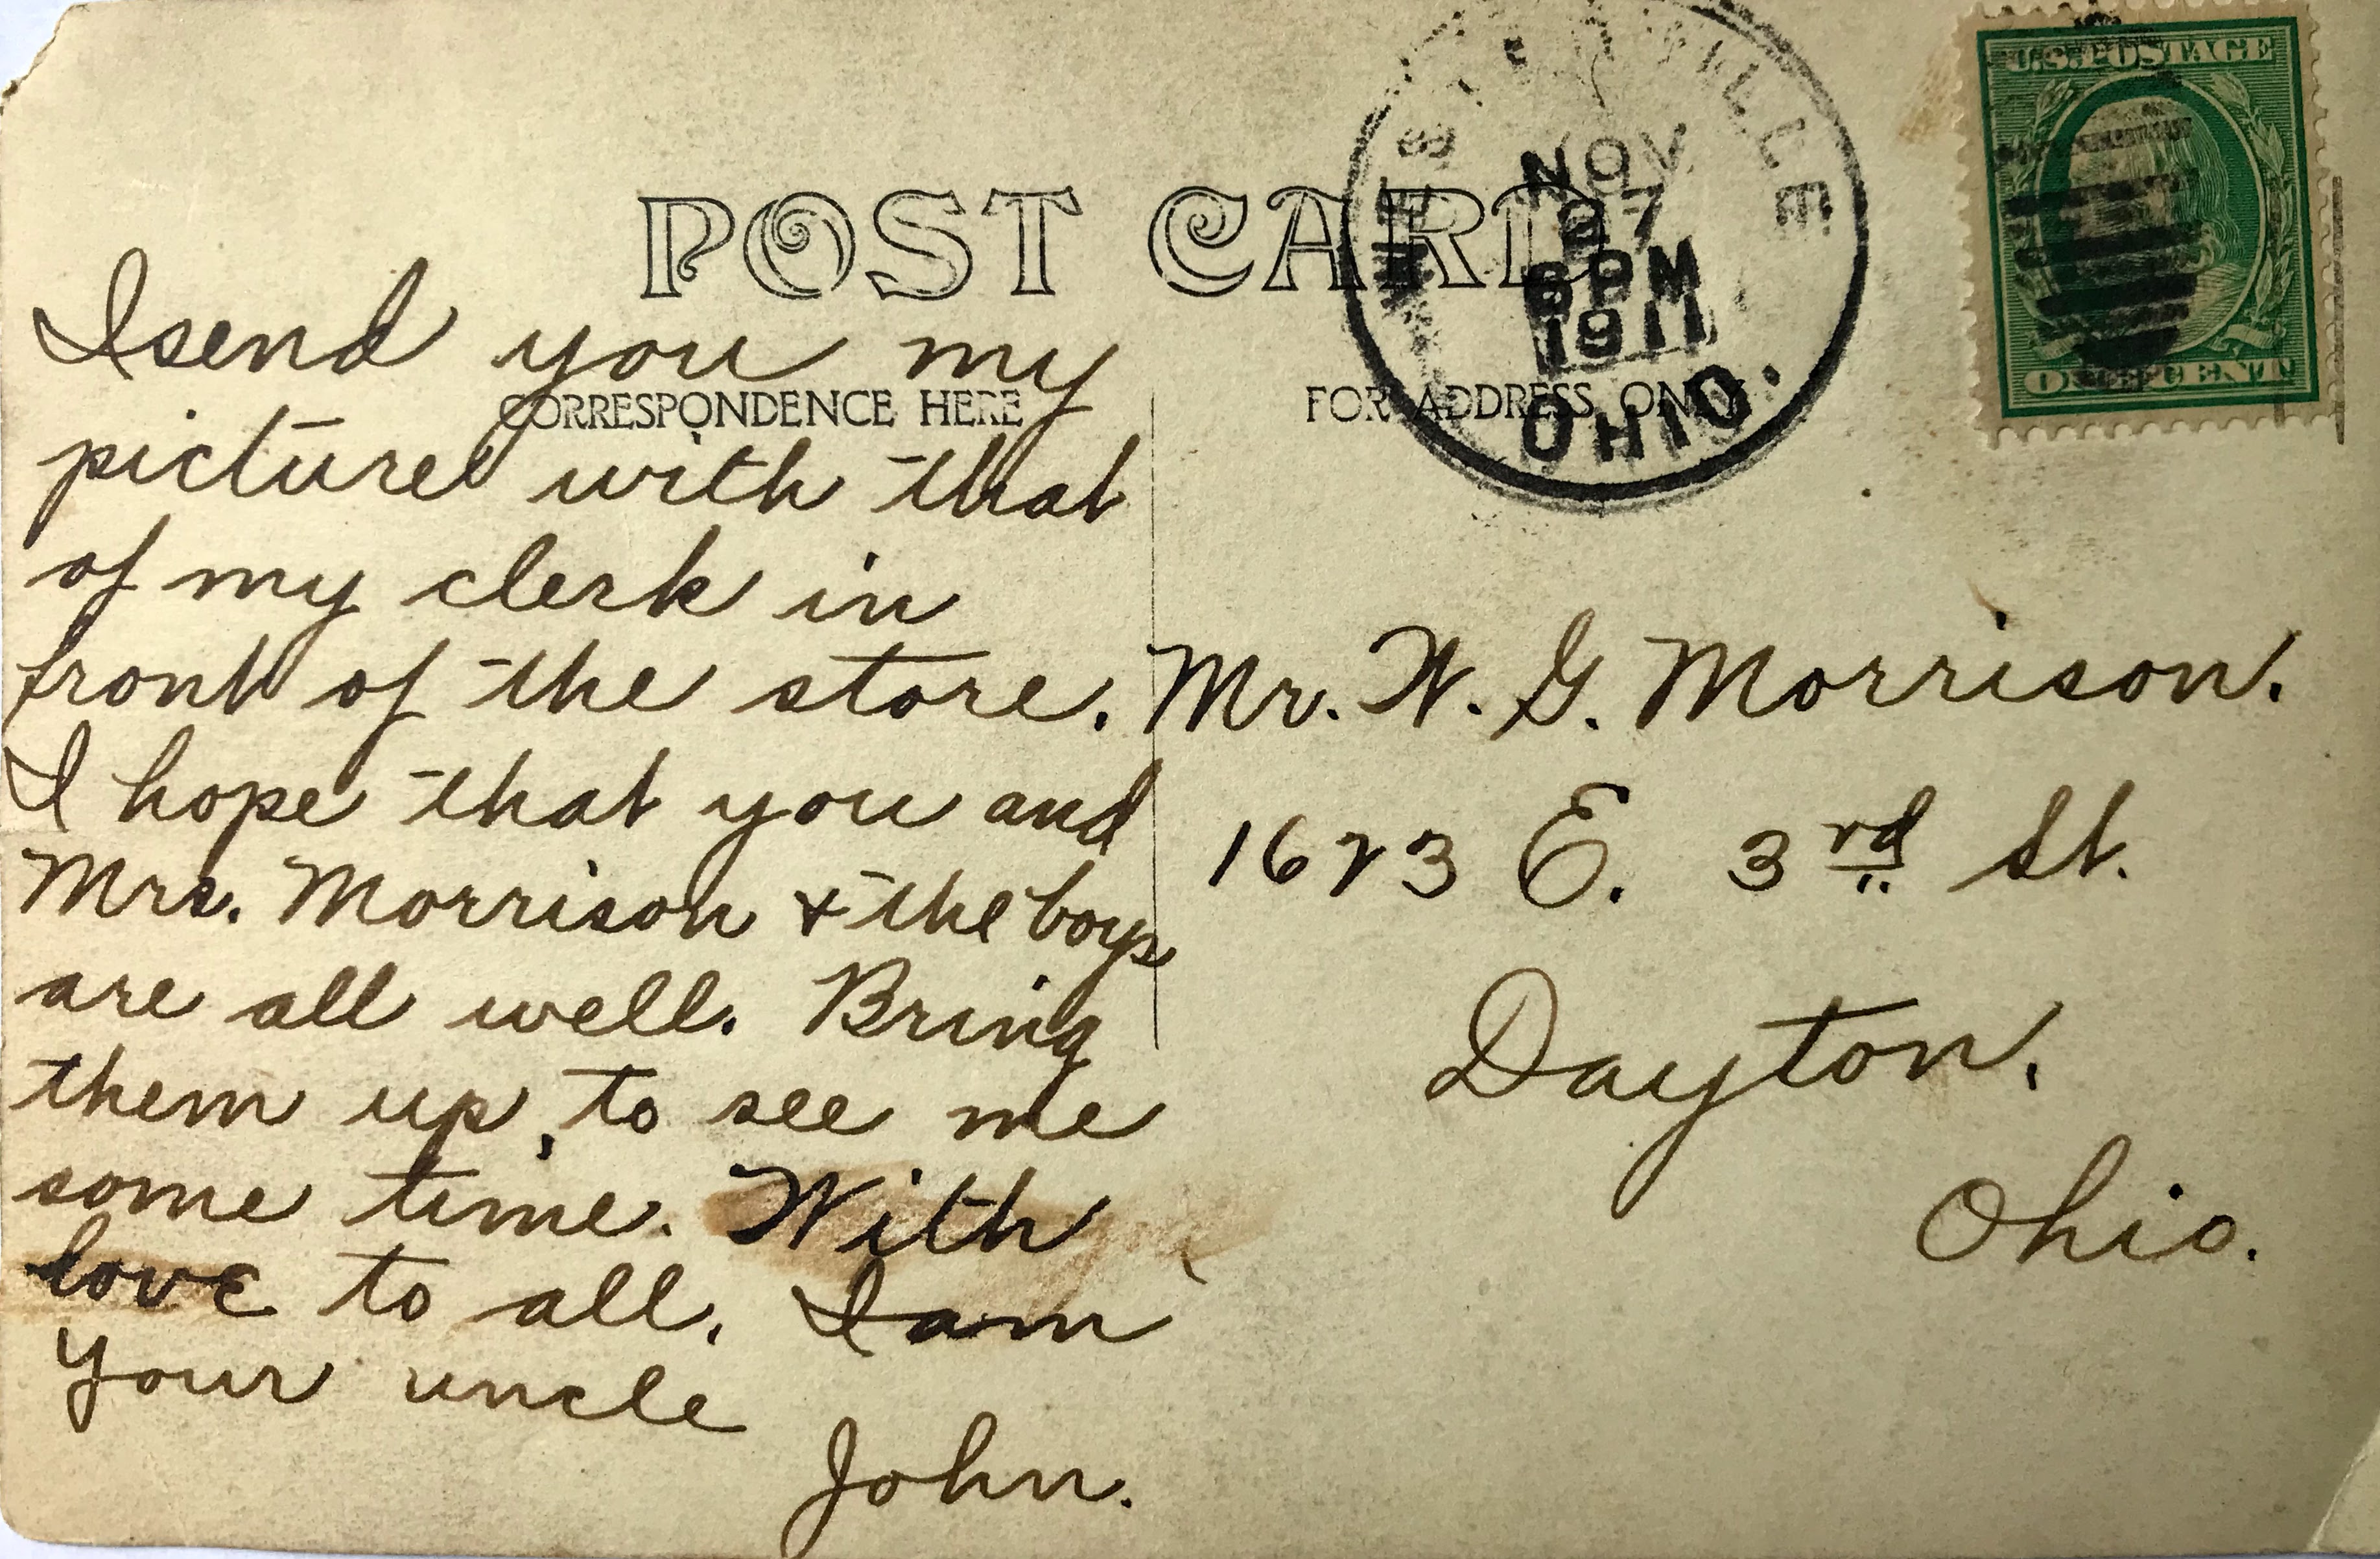 POST CARD
CORRESPONDENCE HERE
FOR ADDRESS ONLY
NOV
27
6 PM
1911
OHIO.
U.S. POSTAGE
ONE CENT
I send you my
picture with that
of my clerk in
front of the store.
I hope that you and
Mrs. Morrison + the boys
are all well. Bring
them up, to see me
some time. With
love to all, I am
Your uncle
John.
Mr. W. G. Morrison.
1623 E. 3rd St.
Dayton,
Ohio.